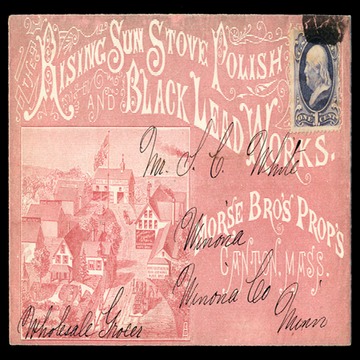 THE
RISING SUN STOVE POLISH
AND BLACK LEAD W.
WORKS.
ONE CENT
Mr. S. C. White
MORSE BRO'S PROP'S
Winona
CANTON, MASS.
Winona Co
Minn
Wholesale Grocer